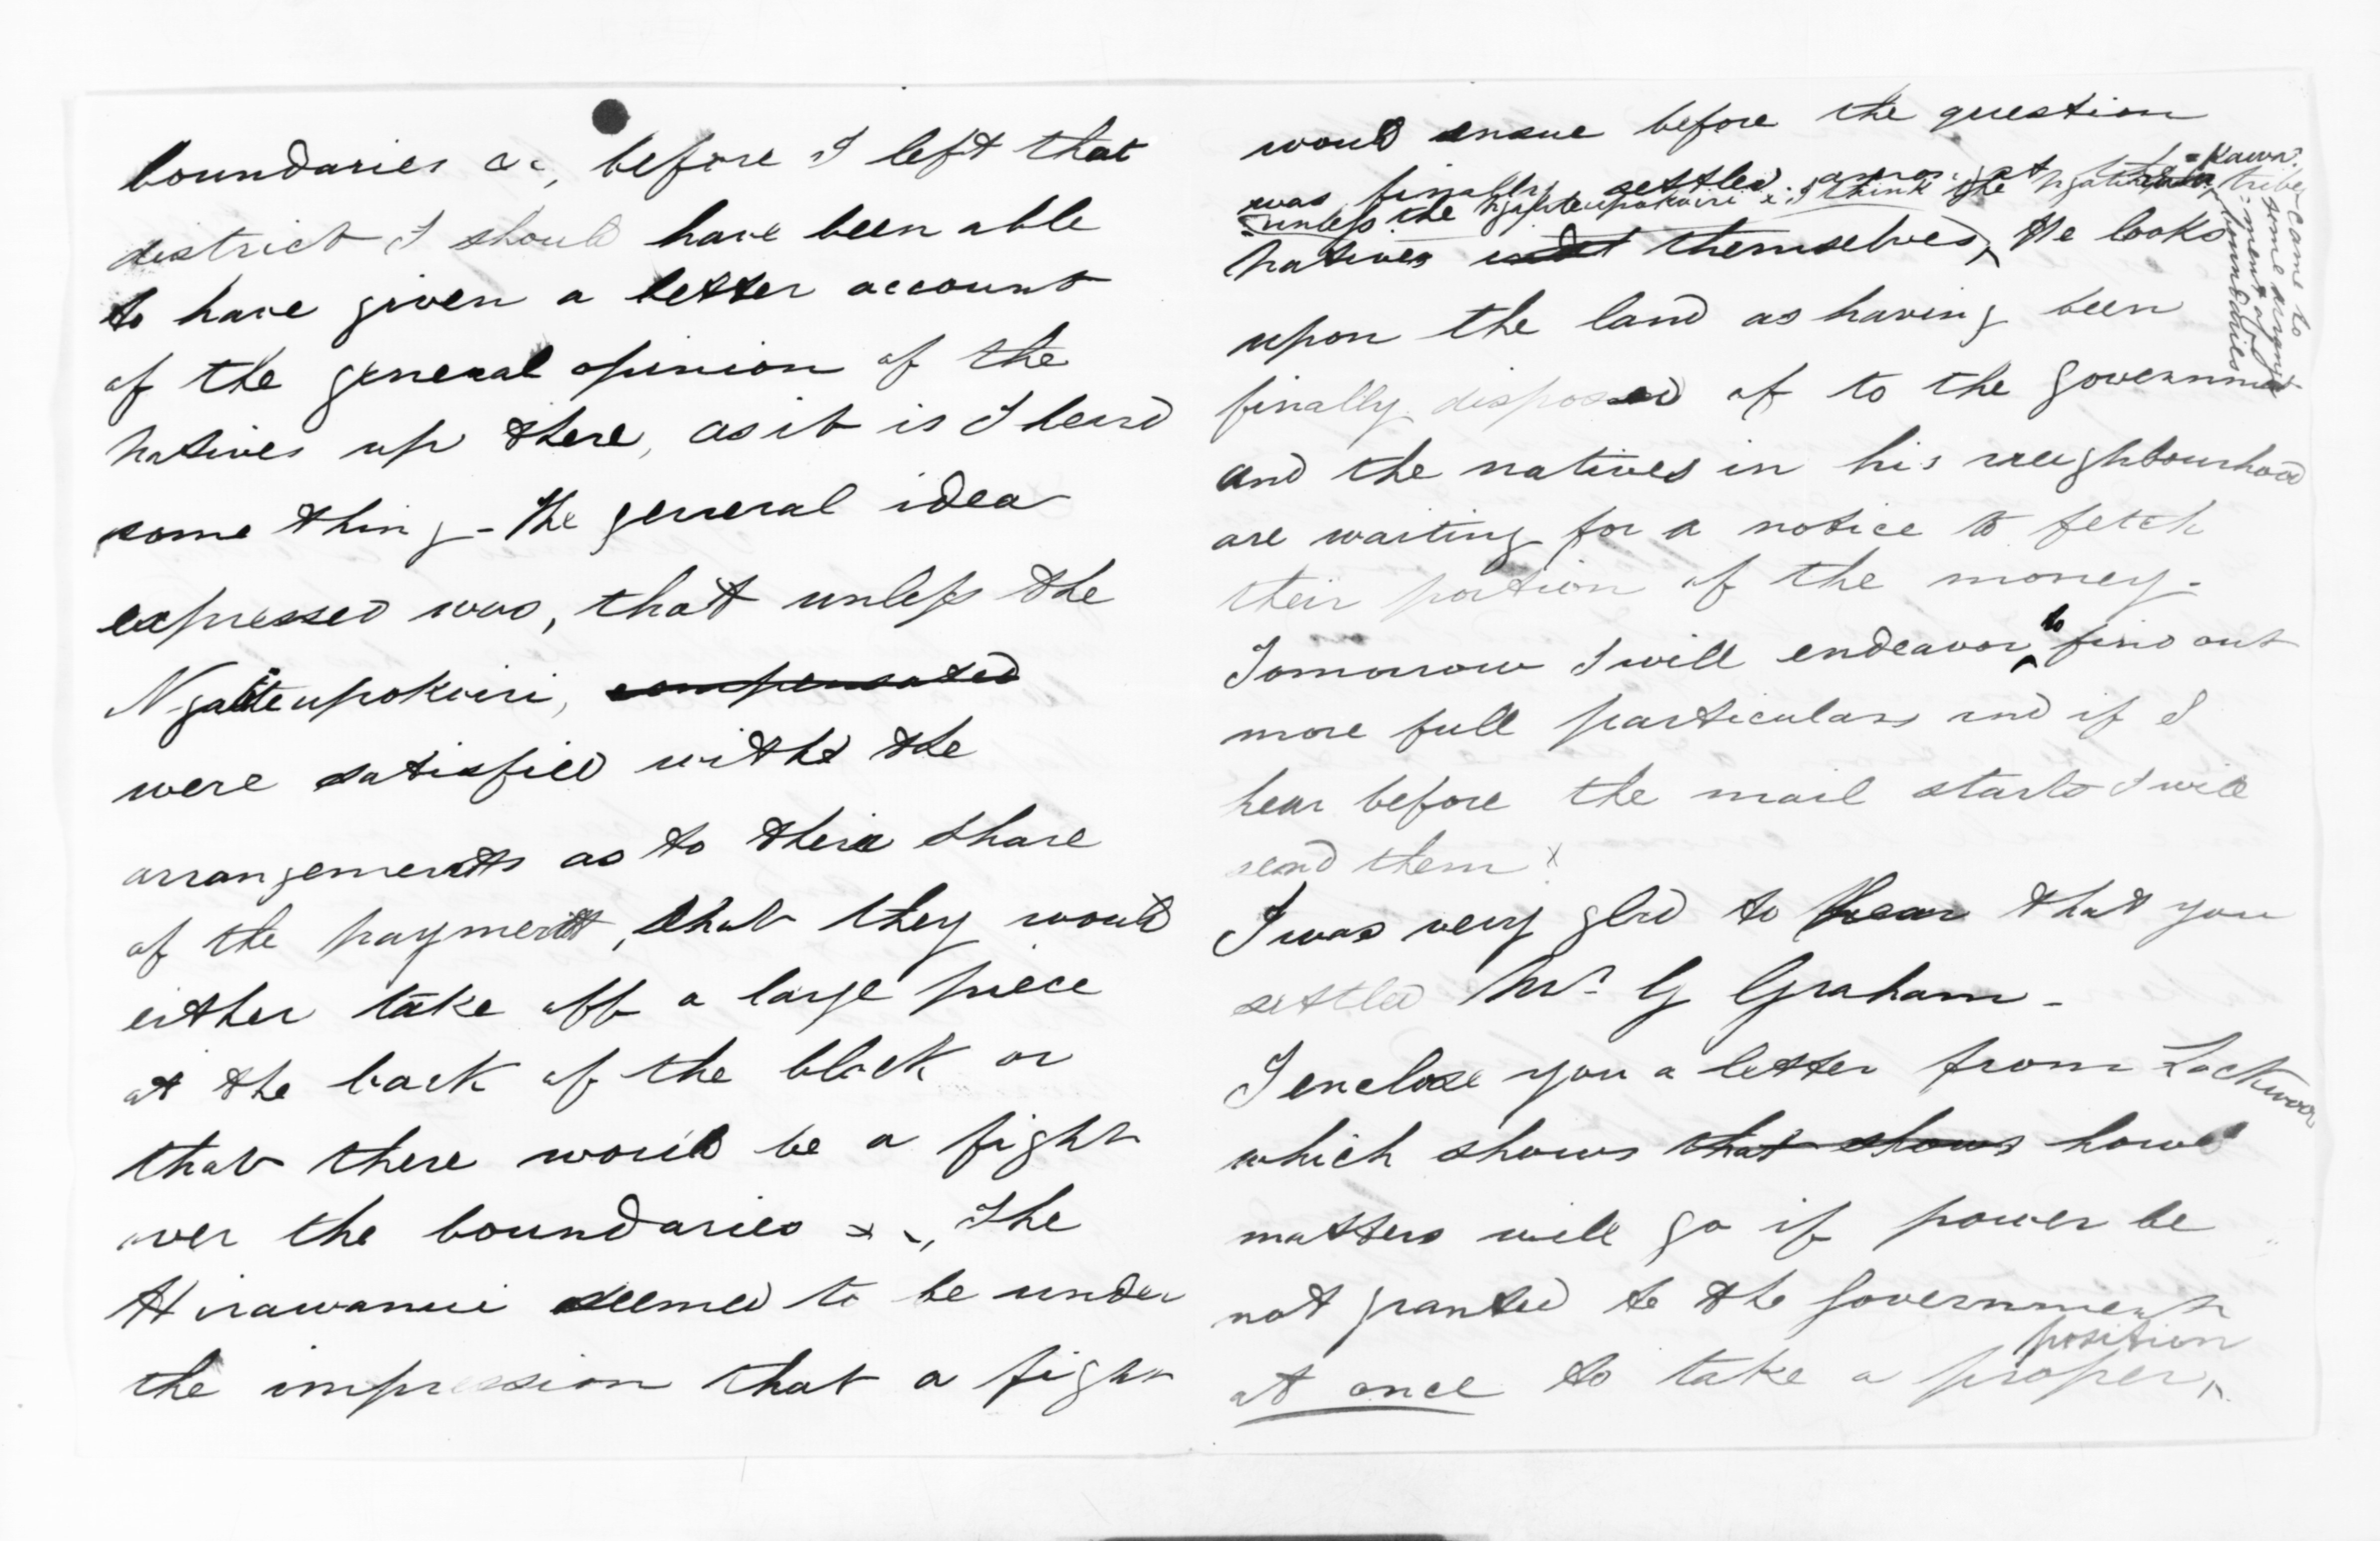 boundaries &c, before I left that
district I should have been able
to have given a better account
of the general opinion of the
natives up there, as it is I heard
some thing - the general idea
expressed was, that unless the
Ngatiteupokoiri, compensated
were satisfied with the
arrangements as to their share
of the payment, that they would
either take off a large piece
at the back of the block or
that there would be a fight
over the boundaries &c, The
Hirawanui seemed to be under
the impression that a fight
would ensue before the question
was finally settled, among at
unless the Ngatiteupokoiri & I think the Ngatirau=kawa tribe came to some arrangement of boundaries
natives themselves, He looks
upon the land as having been
finally disposed of to the government
and the natives in his neighbourhood
are waiting for a notice to fetch
their portion of the money -
Tomorrow I will endeavor to find out
more full particulars and if I
hear before the mail starts I will
send them x
I was very glad to hear that you
settled Mr. G Graham -
I enclose you a letter from Lockwood
which shows that shows how
matters will go if power be
not granted to the government
at once to take a proper position